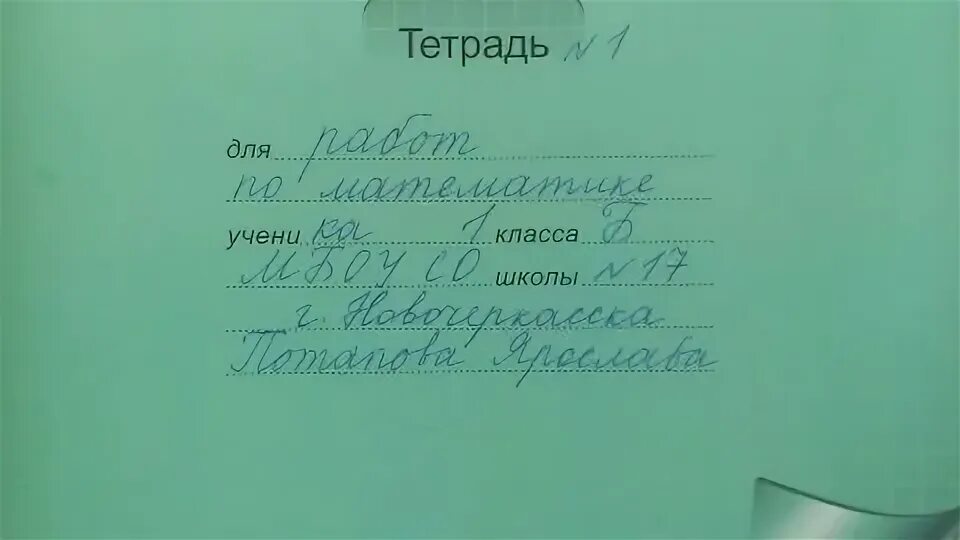 Тетрадь № 1
для работ
по математике
ученика 1 класса Б
МБОУ СО школы № 17
г. Новочеркасска
Потапова Ярослава